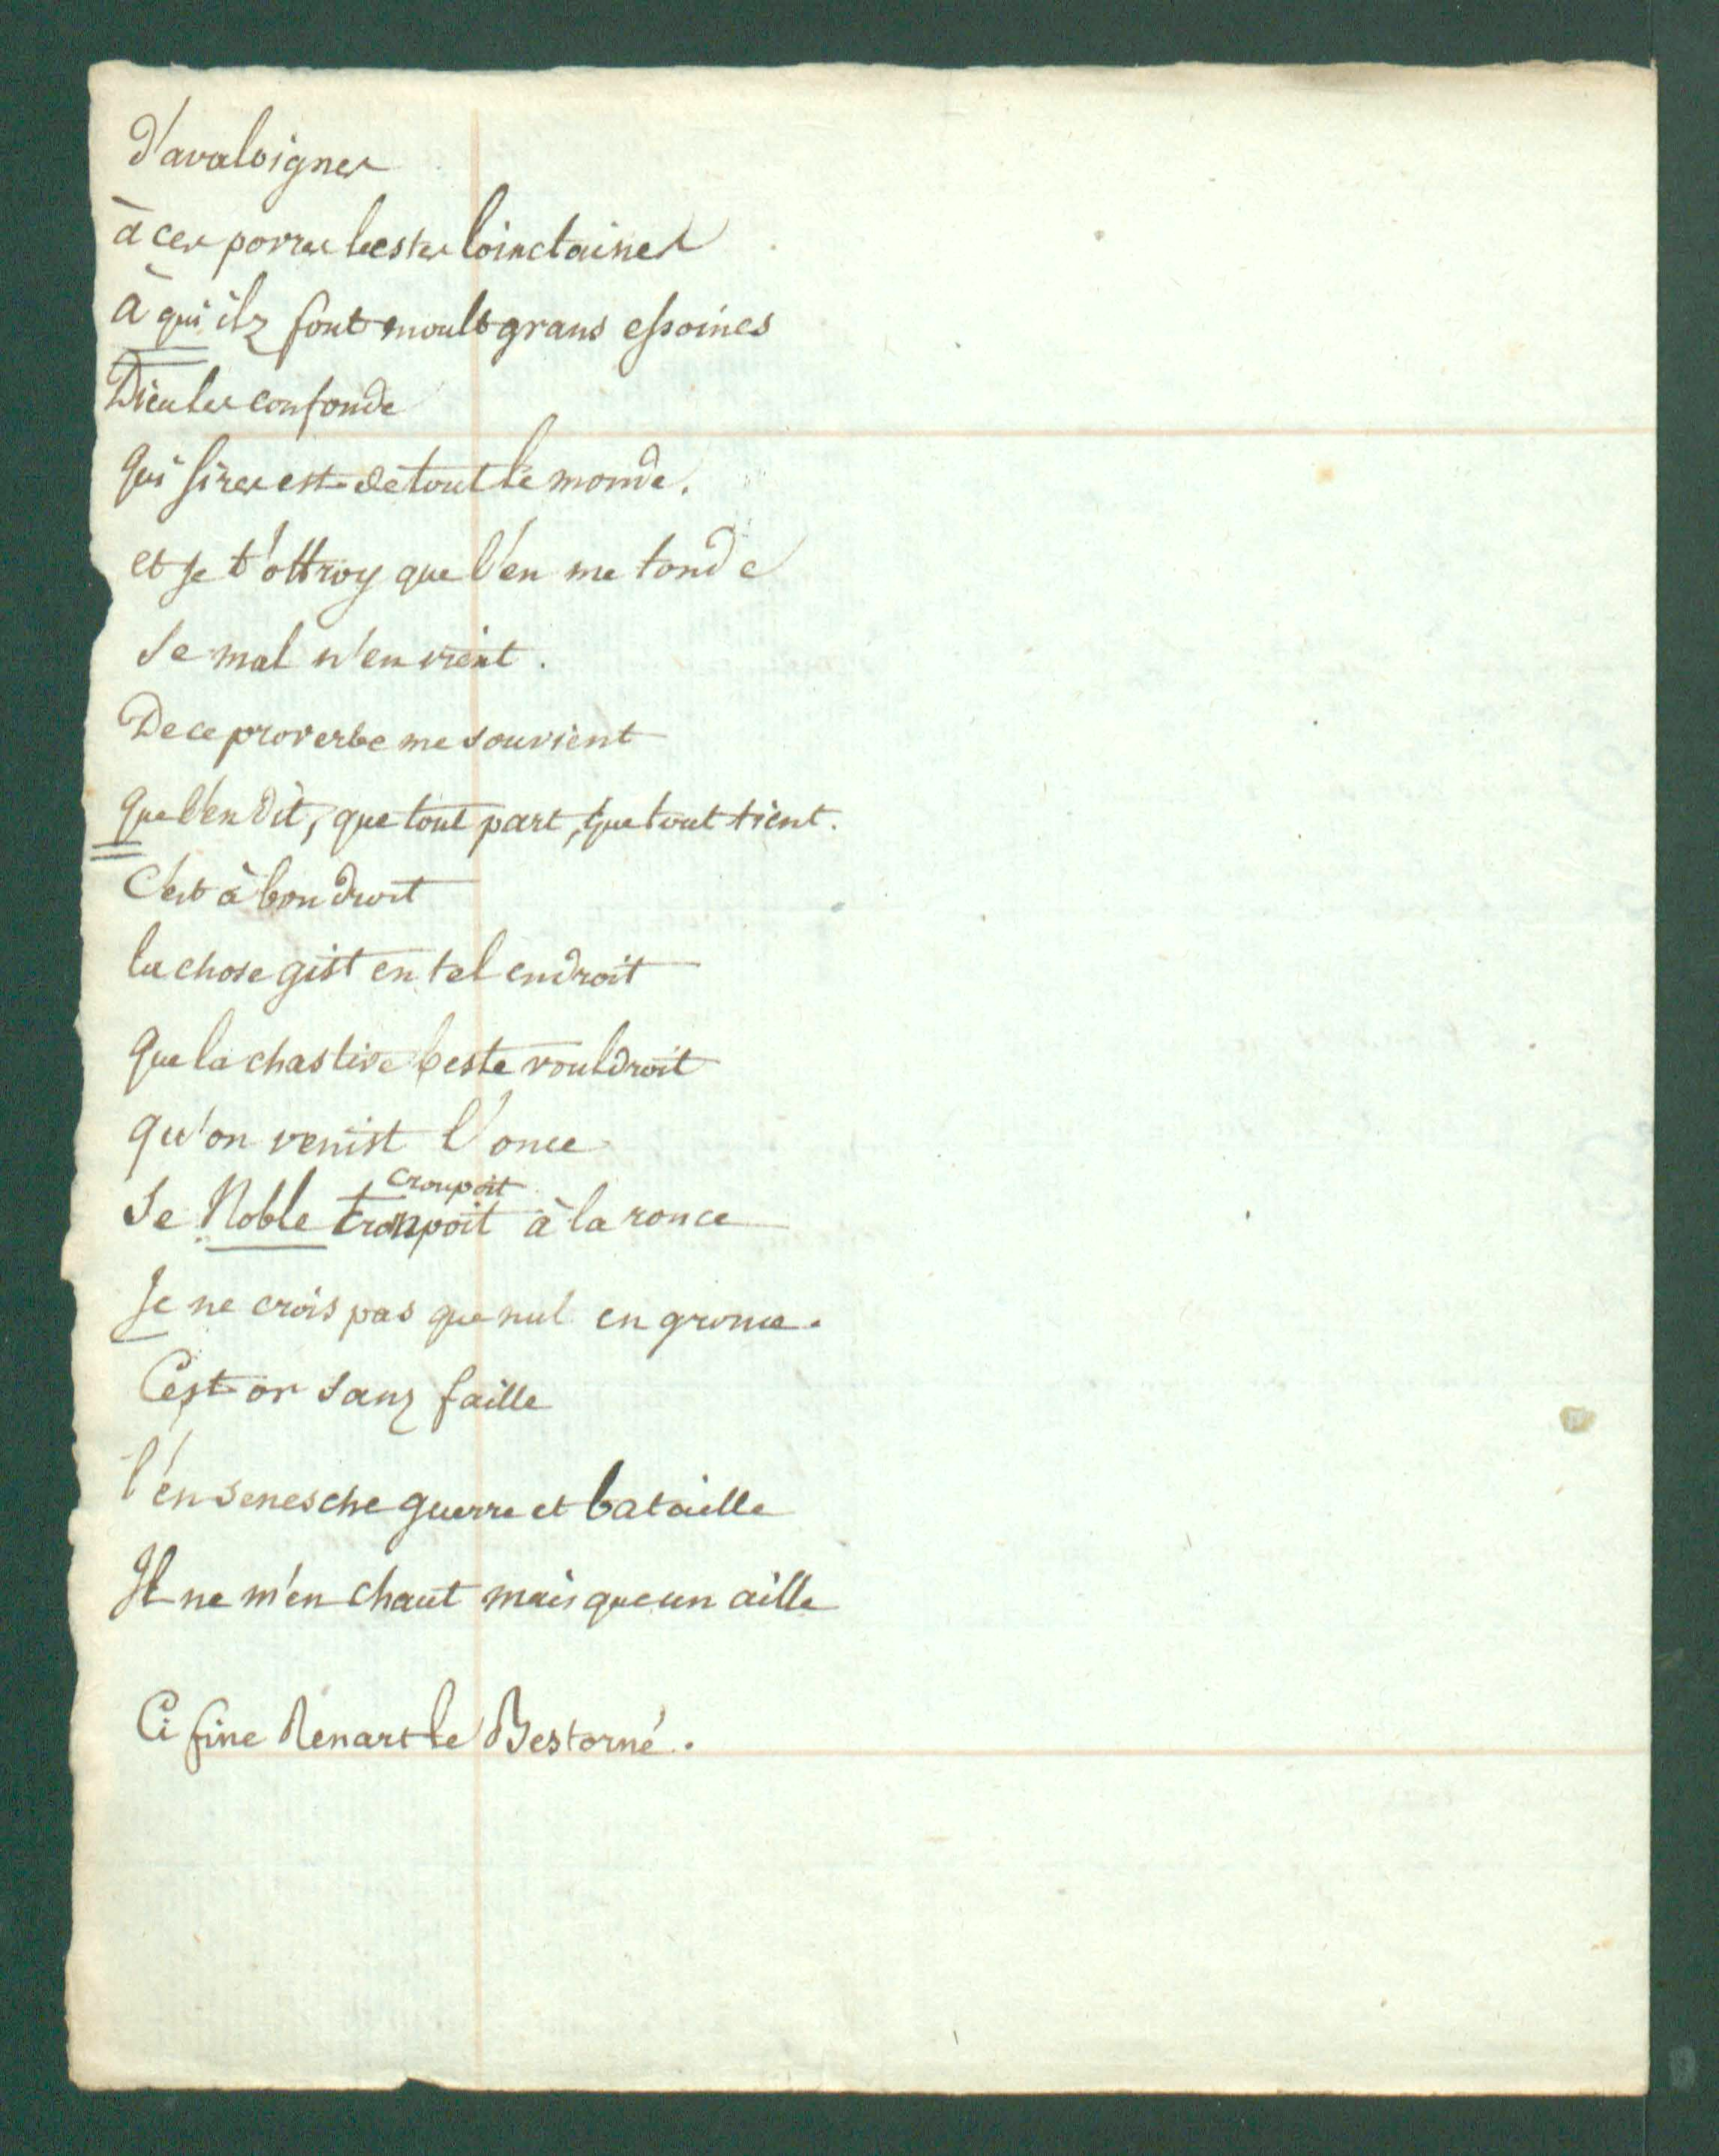 d'avaloignes
à ces povres bestes loinctaines
à qui ilz font moult grans essoines
Dieu les confonde
Qui sires est de tout le monde.
et je t'ottroy que l'en me tonde
Se mal n'en vient.
De ce proverbe me souvient
Que l'en dit, que tout part, que tout tient.
C'est à bon droit
la chose gist en tel endroit
Que la chastive beste vouldroit
qu'on venist l'once
croupoit
Se Noble tronpoit à la ronce
Je ne crois pas que nul en gronce.
C'est or sanz faille
l'en senesche guerre et bataille
Il ne m'en chaut mais que un aille
Ci fine Renart le Bestorné.